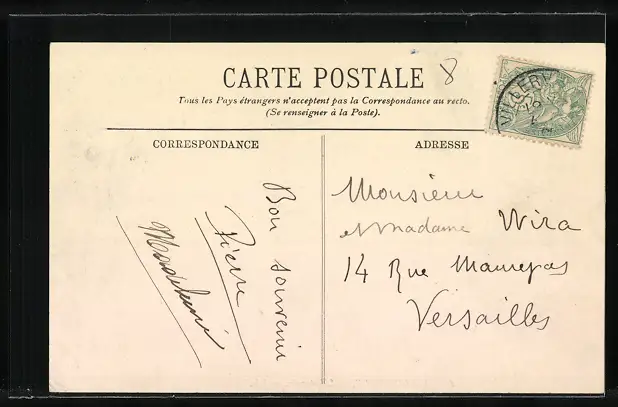 CARTE POSTALE
8
Tous les Pays étrangers n'acceptent pas la Correspondance au recto.
(Se renseigner à la Poste).
CORRESPONDANCE
ADRESSE
Bon souvenir
Pierre
Monsieur
et Madame Wira
14 Rue Maurepas
Versailles